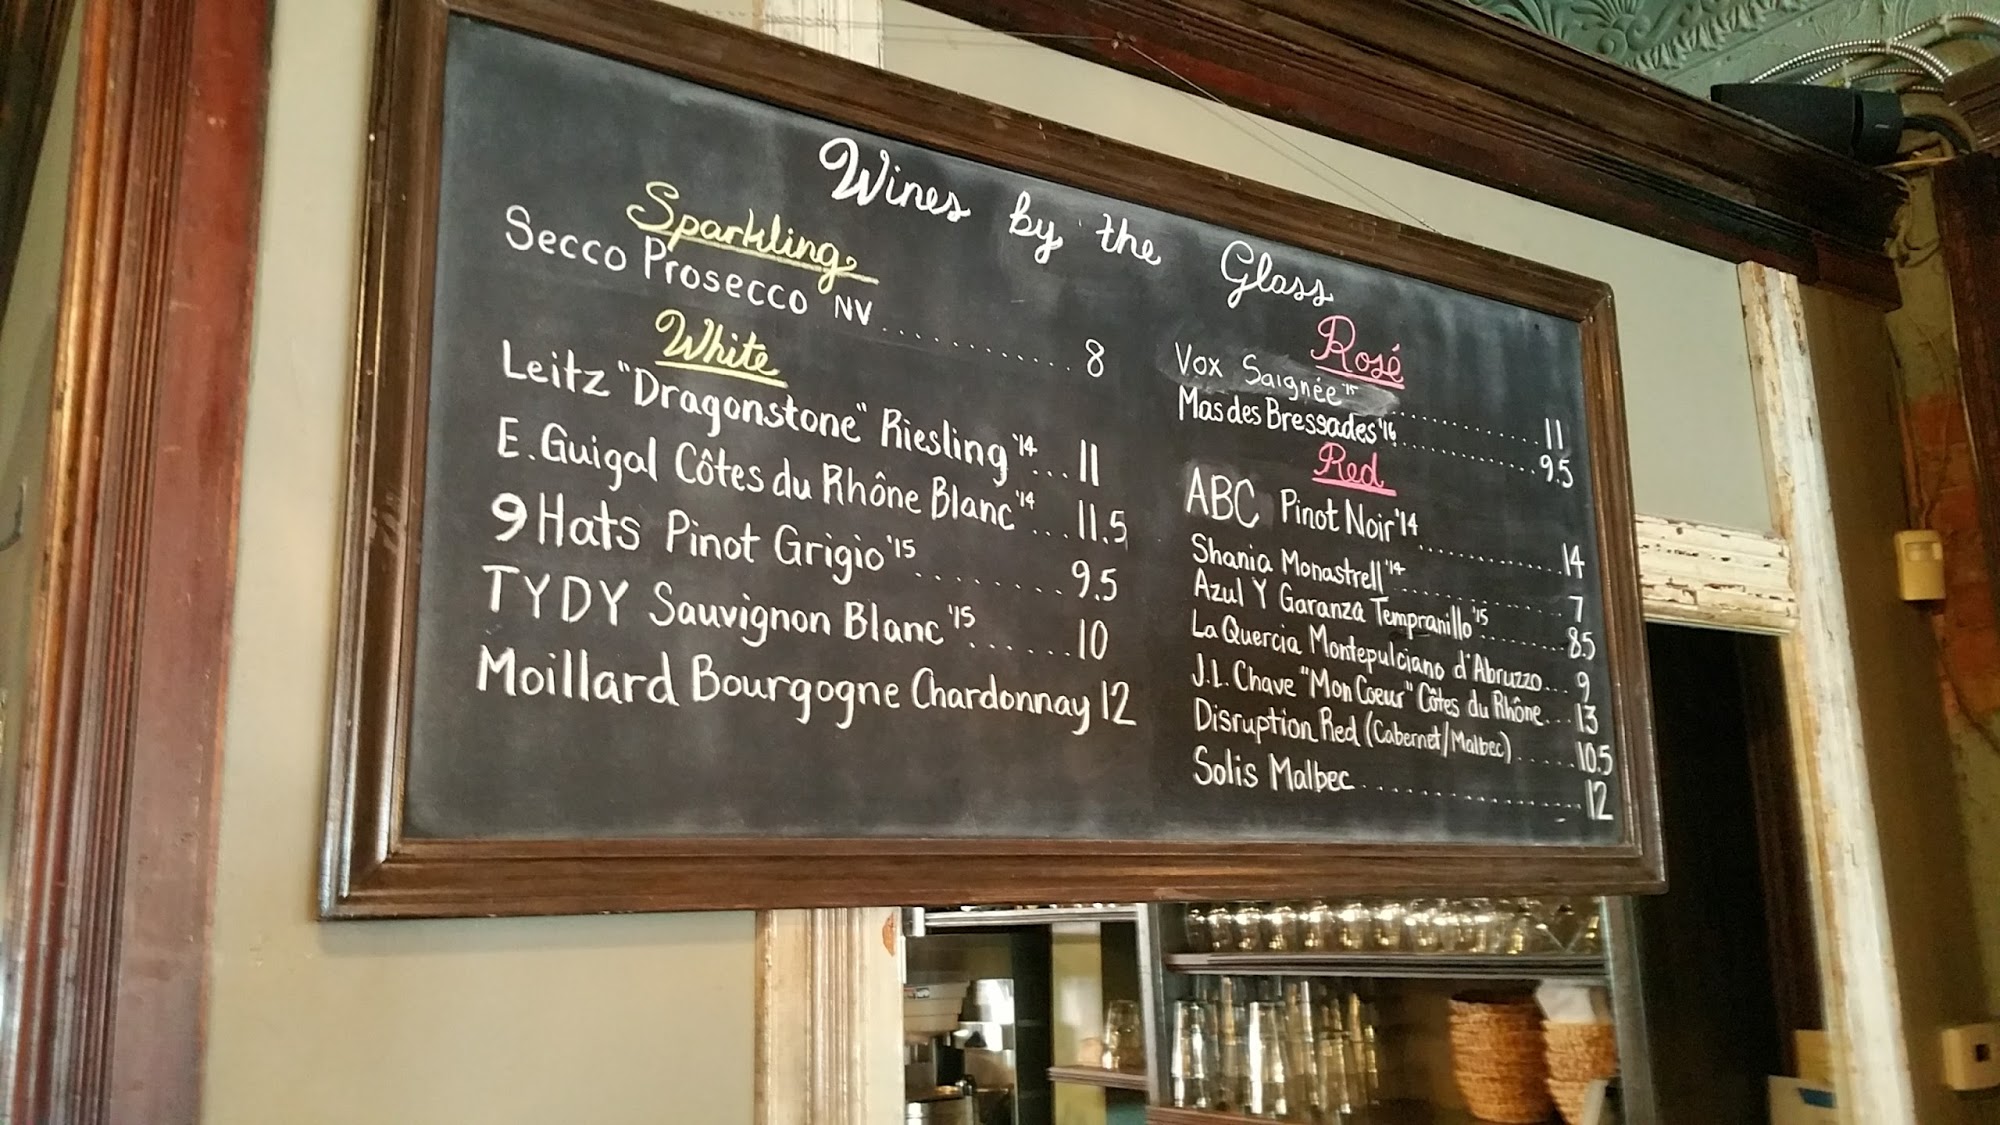 Wines by the Glass
Sparkling
Secco Prosecco NV .......... 8
White
Leitz "Dragonstone" Riesling '14 ... 11
E. Guigal Côtes du Rhône Blanc '14 ... 11.5
9 Hats Pinot Grigio '15 ........ 9.5
TYDY Sauvignon Blanc '15 ...... 10
Moillard Bourgogne Chardonnay 12
Rosé
Vox Saignée '15 .............. 11
Mas des Bressades '16 ............ 9.5
Red
ABC Pinot Noir '14 ............ 14
Shania Monastrell '14 ............ 7
Azul Y Garanza Tempranillo '15 ...... 8.5
La Quercia Montepulciano d'Abruzzo ... 9
J.L. Chave "Mon Coeur" Côtes du Rhône ... 13
Disruption Red (Cabernet/Malbec) ..... 10.5
Solis Malbec ................ 12